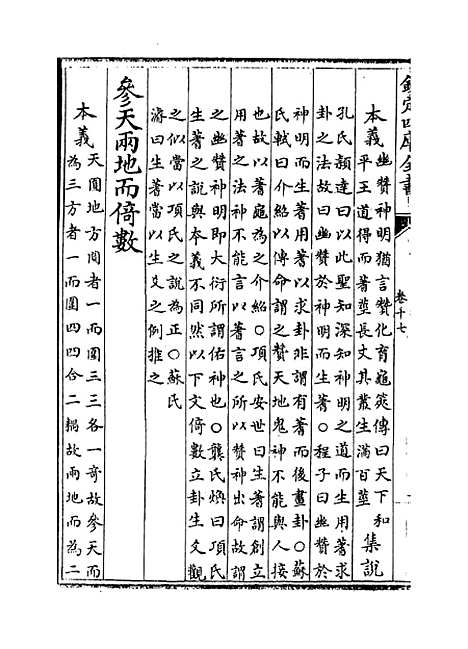 欽定四庫全書
卷十七
本義幽贊神明猶言贊化育龜筴傳曰天下和
平王道得而蓍莖長丈其叢生滿百莖集說
孔氏頴達曰以此聖知深知神明之道而生用蓍求
卦之法故曰幽贊於神明而生蓍○程子曰幽贊於
神明而生蓍用蓍以求卦非謂有蓍而後畫卦○蘇
氏軾曰介紹以傳命謂之贊天地鬼神不能與人接
也故以蓍龜為之介紹○項氏安世曰生蓍謂創立
用蓍之法神不能言以蓍言之所以贊神出命故謂
之幽贊神明即大衍所謂佑神也○龔氏煥曰項氏
生蓍之說與本義不同然以下文倚數立卦生爻觀
之似當以項氏之說為正○蘇氏
濬曰生蓍當以生爻之例推之
參天兩地而倚數
本義天圓地方圓者一而圍三三各一奇故參天而
為三方者一而圍四四合二耦故兩地而為二